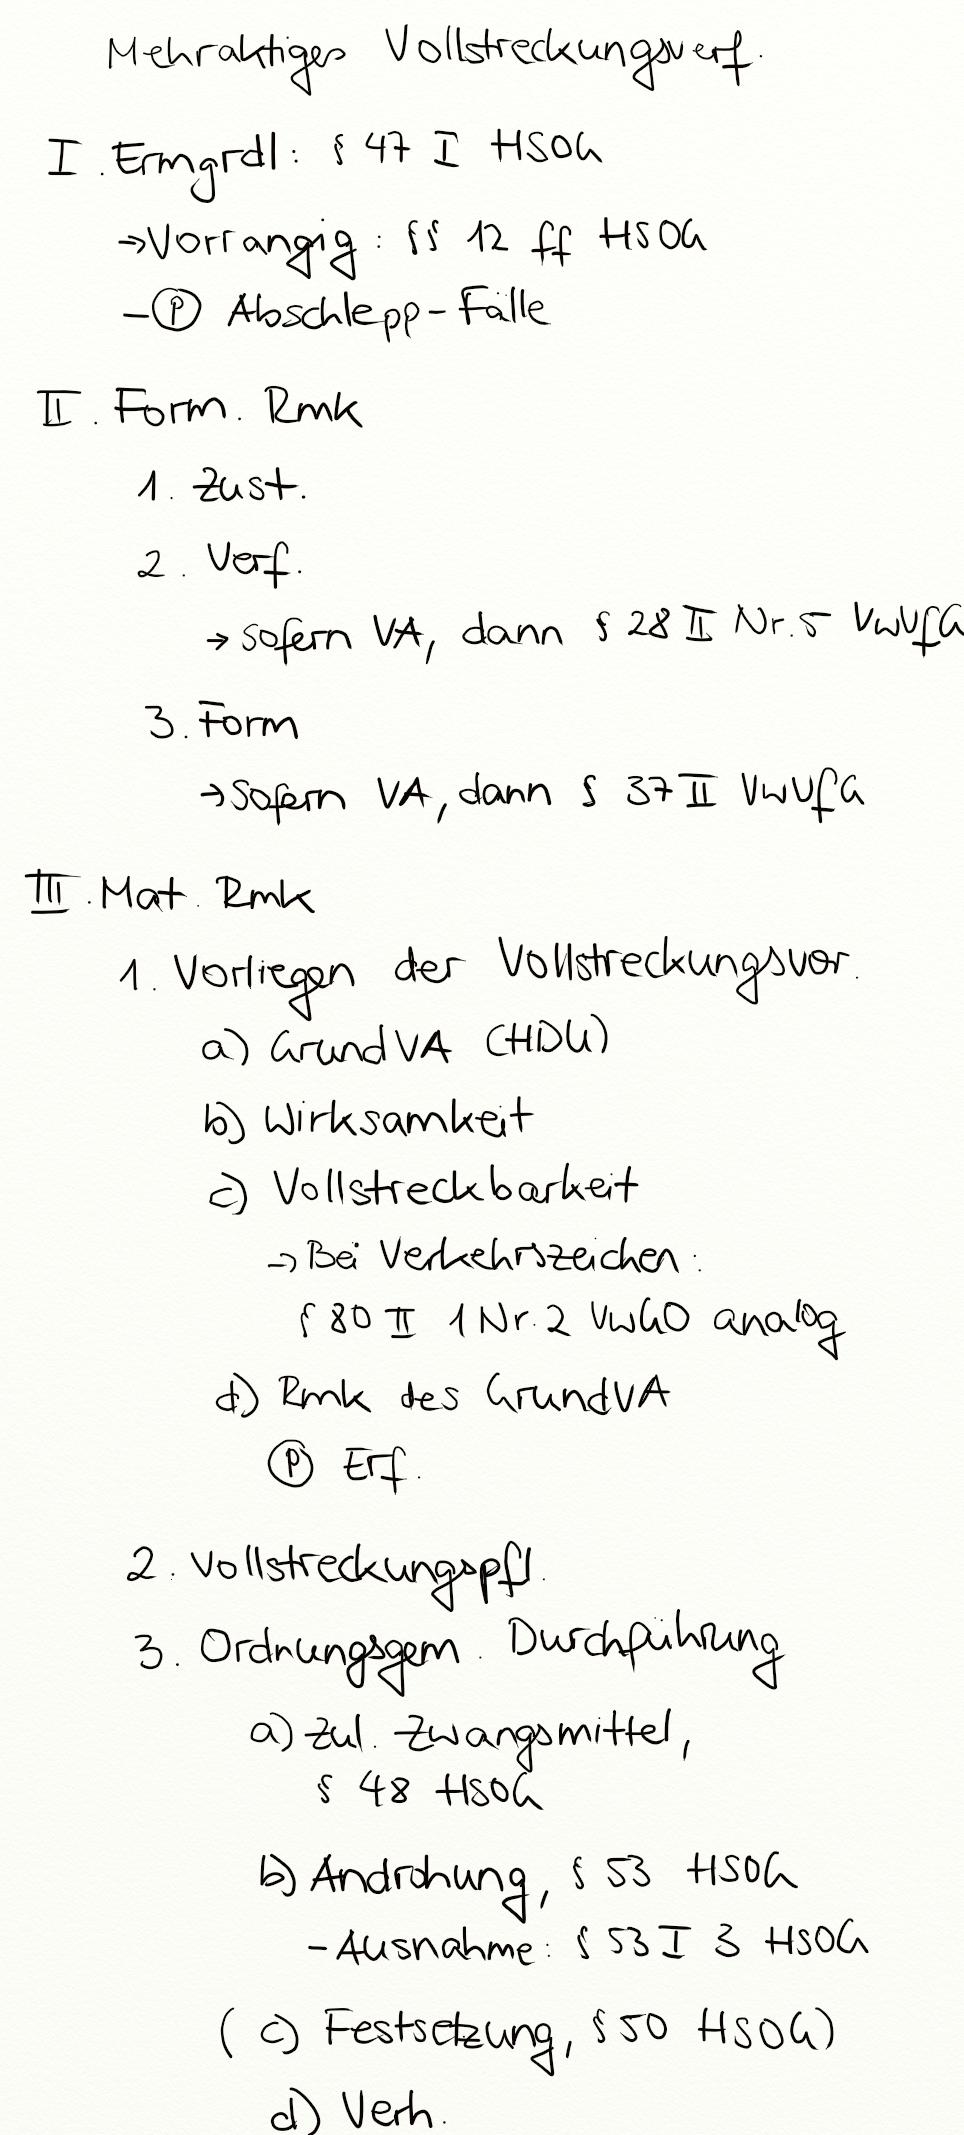 Mehraktiges Vollstreckungsverf.
I. Ermgrdl: § 47 I HSOG
→ Vorrangig: §§ 12 ff HSOG
- Ⓟ Abschlepp-Fälle
II. Form. Rmk
1. Zust.
2. Verf.
→ sofern VA, dann § 28 II Nr. 5 VwVfG
3. Form
→ Sofern VA, dann § 37 II VwVfG
III. Mat. Rmk
1. Vorliegen der Vollstreckungsvor.
a) GrundVA (HDU)
b) Wirksamkeit
c) Vollstreckbarkeit
→ Bei Verkehrszeichen:
§ 80 II 1 Nr. 2 VwGO analog
d) Rmk des GrundVA
Ⓟ Erf.
2. Vollstreckungspfl.
3. Ordnungsgem. Durchführung
a) zul. Zwangsmittel,
§ 48 HSOG
b) Androhung, § 53 HSOG
- Ausnahme: § 53 I 3 HSOG
( c) Festsetzung, § 50 HSOG)
d) Verh.